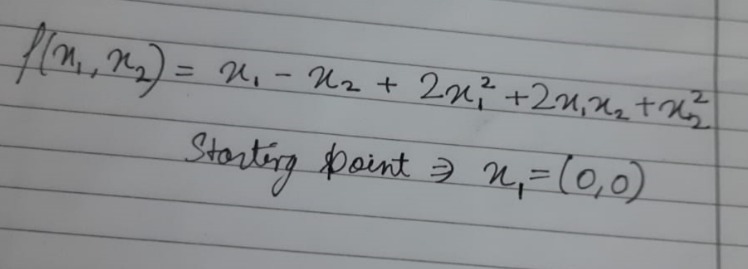 f(x₁, x₂) = x₁ - x₂ + 2x₁² + 2x₁x₂ + x₂²
Starting point ⇒ x₁ = (0,0)